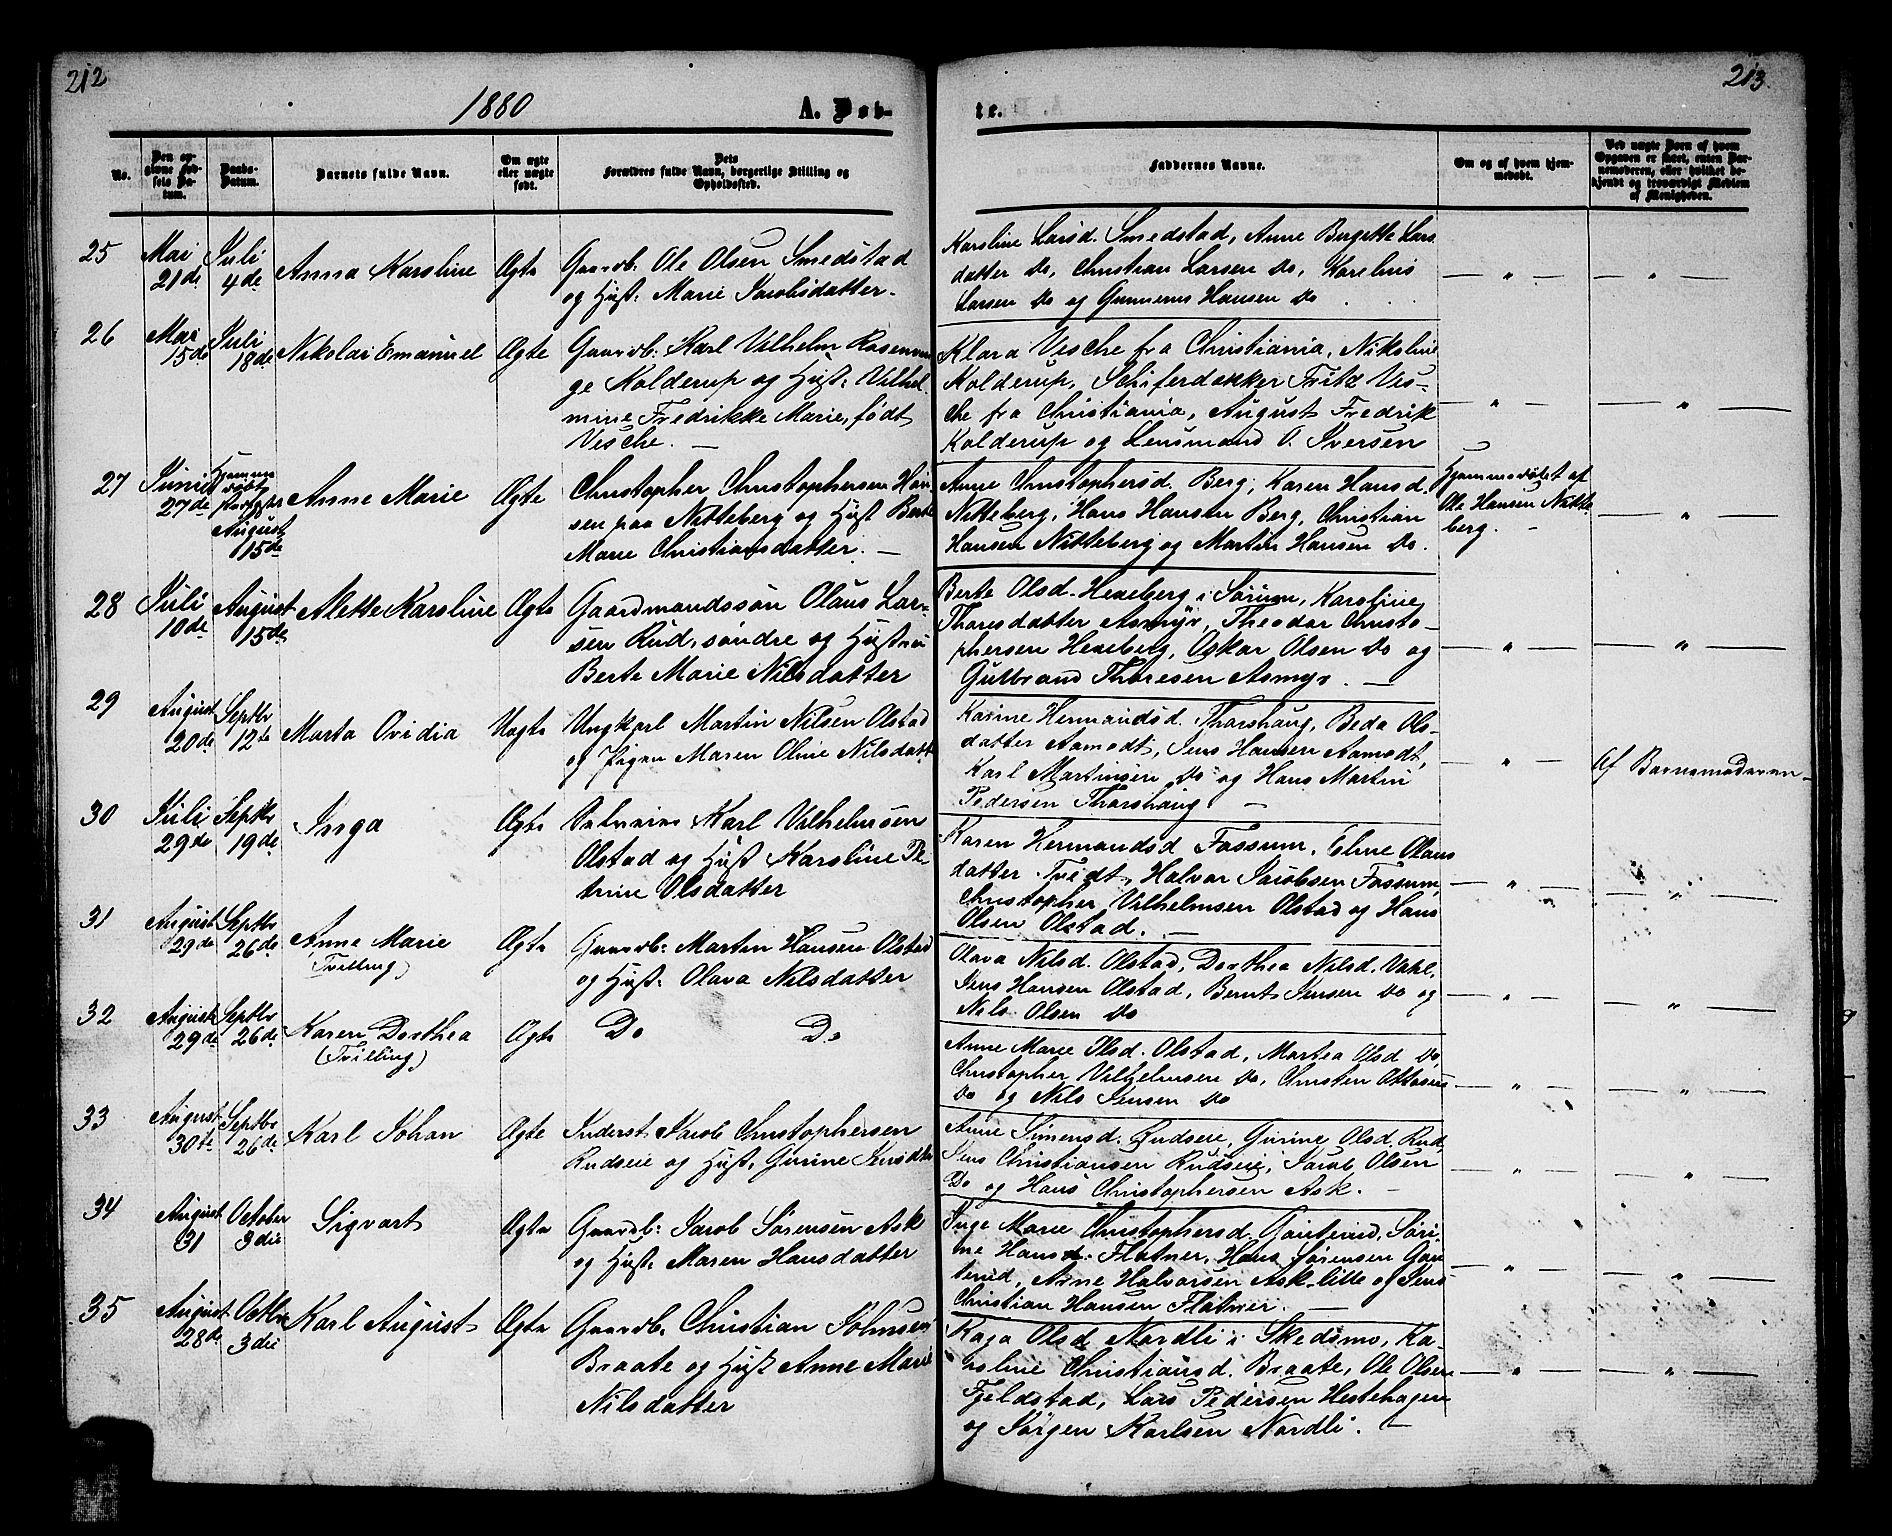 212
213.
1880
A. Døb-
te.
No.
Den op-
givne Fød-
sels Da-
tum.
Daabs-
Datum.
Barnets fulde Navn.
Om ægte
eller uægte
født.
Dets
Forældres fulde Navn, borgerlige Stilling og
Opholdssted.
Faddernes Navne.
Om og af hvem hjem-
medøbt.
Ved uægte Børn af hvem
Opgaven er skeet, enten Bar-
nemoderen, eller hvilket be-
kjendt og troværdigt Medlem
af Menigheden.
25
Mai
21de
Juli
4de
Anna Karoline
Ægte
Gaardb: Ole Olsen Smedstad
og Hust: Marie Jacobsdatter.
Karoline Larsd. Smedstad, Anne Bergette Lars
datter Do, Christian Larsen Do, Karelius
Larsen Do og Gunnerus Hansen Do
— " —
— " —
26
Mai
15de
Juli
18de
Nikolai Emanuel
Ægte
Gaardb: Karl Vilhelm Rosenvin
ge Kolderup og Hust: Vilhel
mine Fredrikke Marie, født
Vesche. —
Klara Vesche fra Christiania, Nikoline
Kolderup, Skiferdækker Fritz Ves-
che fra Christiania, August Fredrik
Kolderup og Lensmand O. Iversen
— " —
— " —
27
Juni
27de
Hjemme
døbt
August
15de
Anne Marie
Ægte
Christopher Christophersen Han
sen paa Nitteberg og Hust Berte
Marie Christiansdatter. —
Anne Christophersd. Berg, Karen Hansd.
Nitteberg, Hans Hansen Berg, Christian
Hansen Nitteberg og Martin Hansen Do.
Hjemmedøbt af
Ole Hansen Nitte
berg.
— " —
28
Juli
10de
August
15de
Alette Karoline
Ægte
Gaardmandssøn Olaus Lar-
sen Rud, søndre og Hustru
Berte Marie Nilsdatter
Berte Olsd. Hexeberg i Sørum, Karoline
Thoresdatter Asmyr, Theodor Christo-
phersen Hexeberg, Oskar Olsen Do og
Gulbrand Thoresen Asmyr. —
— " —
— " —
29
August
20de
Septbr
12te
Marta Ovidia
Uægte
Ungkarl Martin Nilsen Olstad
og Pigen Maren Oline Nilsdatter
Karine Hermandsd. Tharshaug, Beda Ols-
datter Aamodt, Jens Hansen Aamodt,
Karl Martinsen Do og Hans Martin
Pedersen Tharshaug —
— " —
Af Barnemoderen —
30
Juli
29de
Septbr
19de
Inga
Ægte
Karl Vilhelmsen
Olstad og Hust Karoline Pe-
trine Olsdatter
Karen Hermandsd Fossum, Eline Olaus
datter Tvedt, Halvor Jacobsen Fossum,
Christopher Vilhelmsen Olstad og Hans
Olsen Olstad. —
— " —
"
31
August
29de
Septbr
26de
Anne Marie
(Tvilling)
Ægte
Gaardb: Martin Hansen Olstad
og Hust: Olava Nilsdatter
Olava Nilsd. Olstad, Dorthea Nilsd. Vahl,
Jens Hansen Olstad, Bernt Jensen Do og
Nils Olsen Do
— " —
"
32
August
29de
Septbr
26de
Karen Dorthea
(Tvilling)
Ægte
Do Do
Anne Marie Olsd. Olstad, Martea Olsd Do
Christopher Vilhelmsen Do, Christen Ottosen
Do og Nils Jensen Do
"
"
33
August
30te
Septbr
26de
Karl Johan
Ægte
Inderst Jacob Christophersen
Rudseie og Hust, Gurine Jensdtr
Anne Simensd. Rudseie, Gurine Olsd. Rud,
Jens Christiansen Rudseie, Jacob Olsen
Do og Hans Christophersen Ask. —
"
"
34
August
31
October
3die
Sigvart
Ægte
Gaardb: Jacob Sørensen Ask
og Hust. Maren Hansdatter
Inge Marie Christophersd. Gauterud, Søri-
ne Hansd. Flatner, Hans Sørensen Gau
terud, Arne Halvorsen Ask-lille og Jens
Christian Hansen Flatner. —
— " —
"
35
August
28de
Octbr
3die
Karl August
Ægte
Gaardb. Christian Johnsen
Braate og Hust Anne Marie
Nilsdatter
Kaja Olsd Nordli i Skedsmo, Ka-
roline Christiansd. Braate, Ole Olsen
Fjeldstad, Lars Pedersen Hestehagen
og Jørgen Karlsen Nordli. —
— " —
"